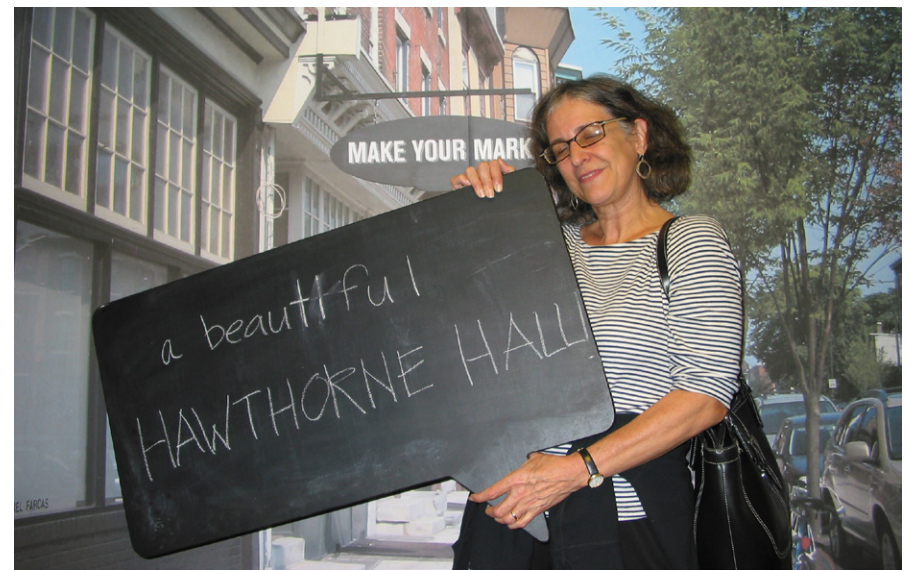 MAKE YOUR MARK
a beautiful
HAWTHORNE HALL